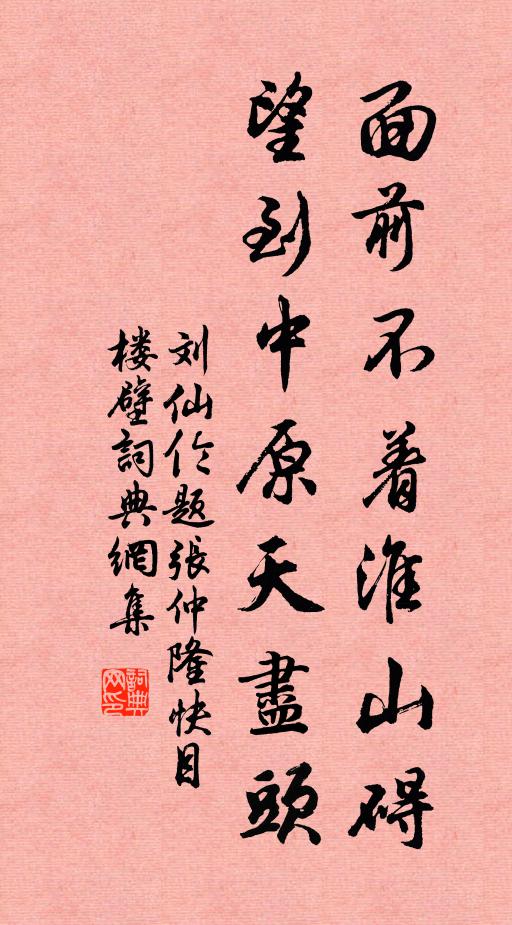 面前不着淮山碍
望到中原天盡頭
刘仙伦题張仲隆快目
楼壁詞典網集
詞典网印